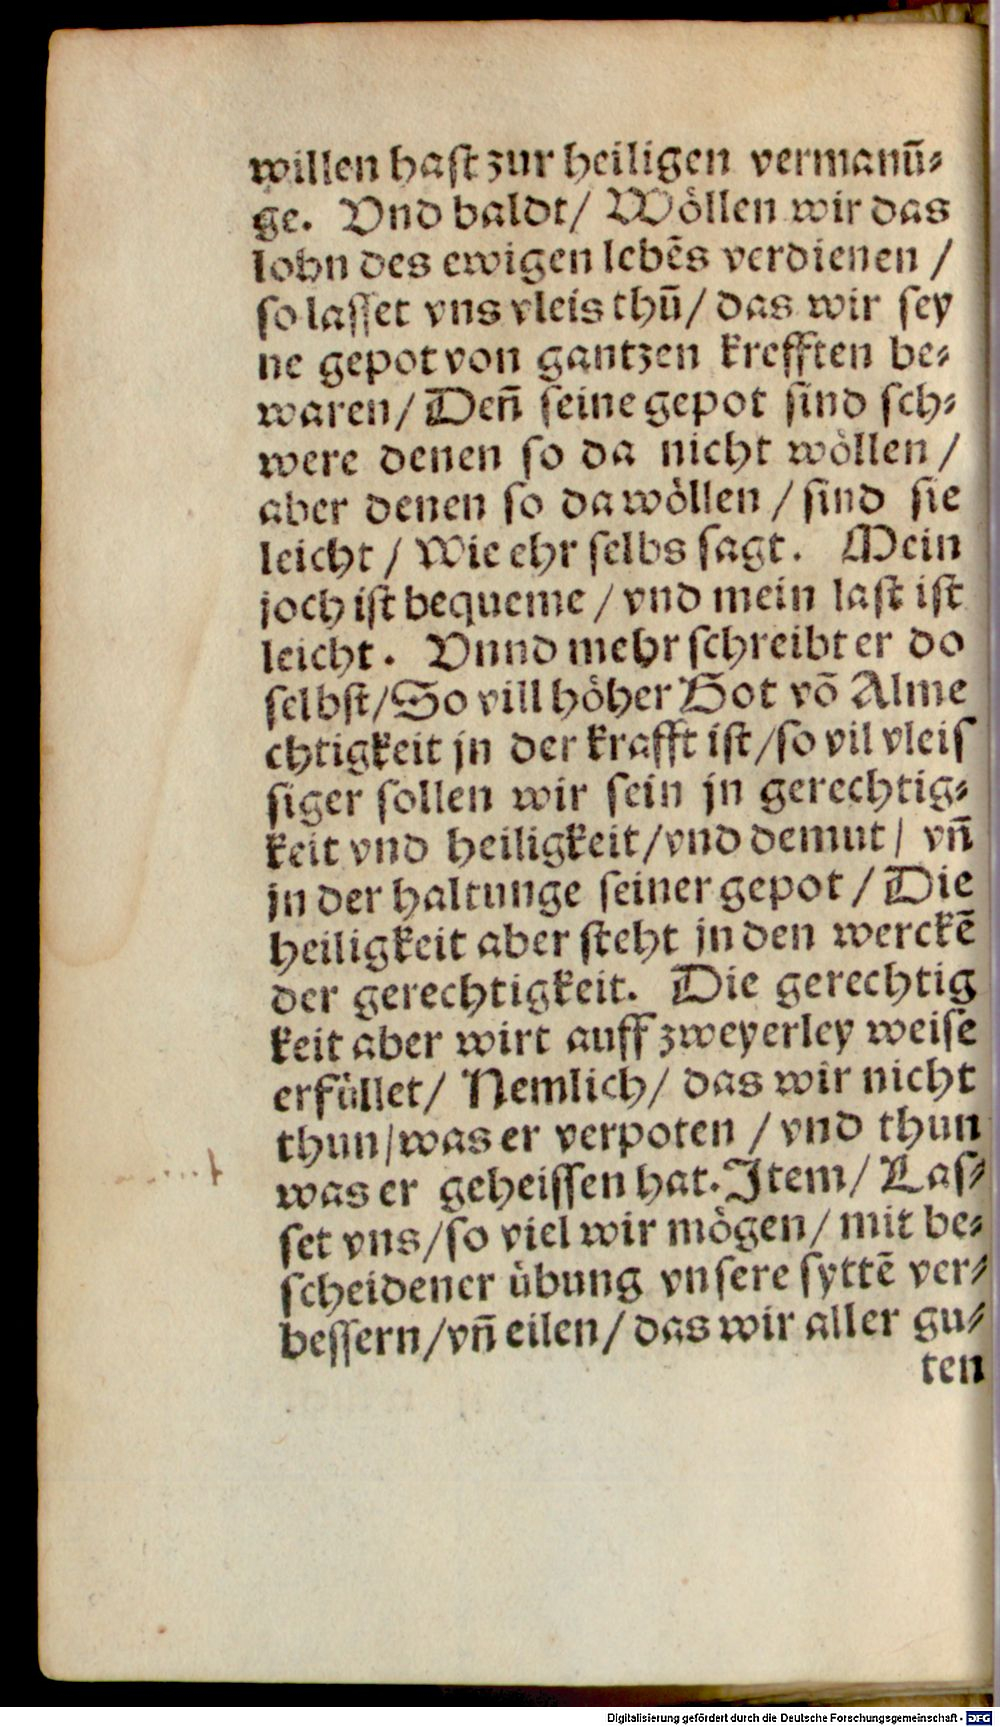 willen hast zur heiligen vermanū⸗
ge. Vnd baldt/ Wöllen wir das
lohn des ewigen lebēs verdienen /
so lasset vns vleis thū/ das wir sey
ne gepot von gantzen krefften be⸗
waren/ Deñ seine gepot sind sch⸗
were denen so da nicht wöllen /
aber denen so da wöllen / sind sie
leicht / Wie ehr selbs sagt. Mein
joch ist bequeme / vnd mein last ist
leicht. Vnnd mehr schreibt er do
selbst/ So vill höher Got vō Alme
chtigkeit jn der krafft ist/so vil vleis
siger sollen wir sein jn gerechtig⸗
keit vnd heiligkeit/vnd demut/ vñ
jn der haltunge seiner gepot / Die
heiligkeit aber steht jn den werckē
der gerechtigkeit. Die gerechtig
keit aber wirt auff zweyerley weise
erfüllet/ Nemlich/ das wir nicht
thun/was er verpoten / vnd thun
was er geheissen hat. Item/ Las⸗
set vns/so viel wir mögen/ mit be⸗
scheidener übung vnsere syttē ver⸗
bessern/vñ eilen/ das wir aller gu⸗
ten
Digitalisierung gefördert durch die Deutsche Forschungsgemeinschaft - DFG